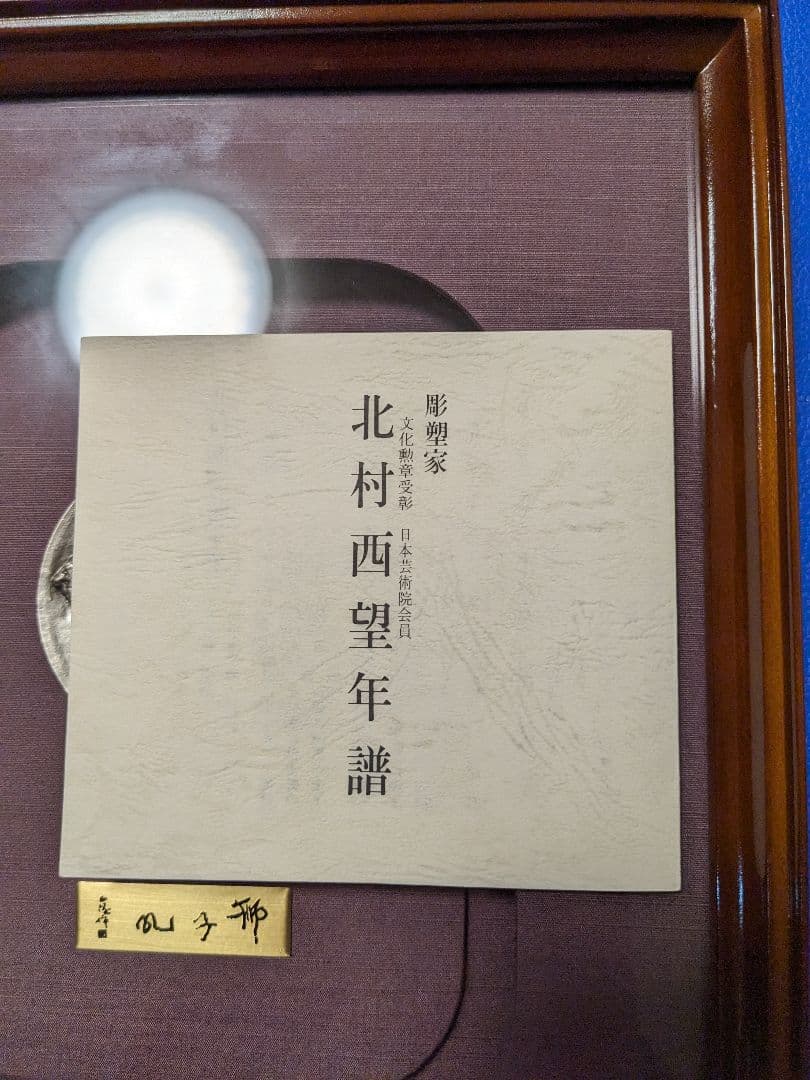 彫塑家
文化勲章受彰 日本芸術院会員
北村西望年譜
獅子吼